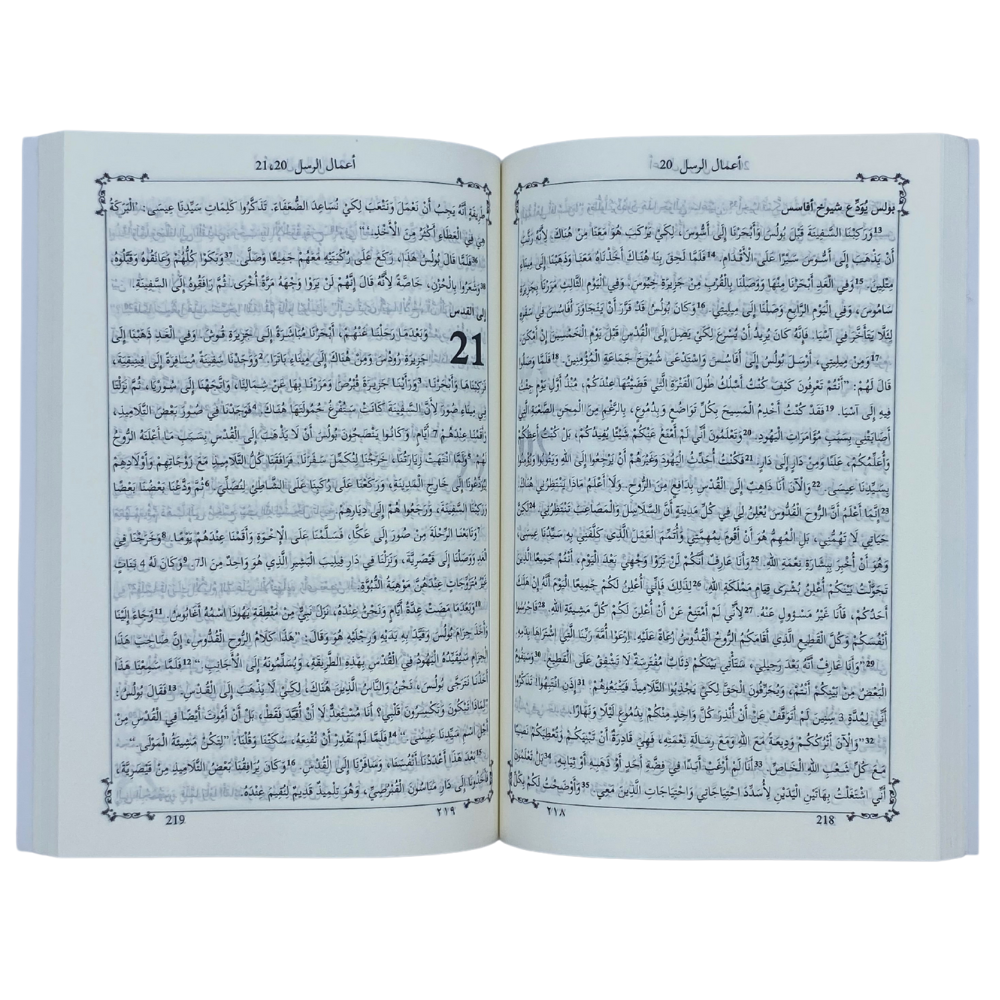 أعمال الرسل 20
بولس يُوَدِّع شيوخ أفاسس
13 وَرَكِبْنَا السَّفِينَةَ قَبْلَ بُولُسَ وَأَبْحَرْنَا إِلَى أَسُّوسَ، لِكَيْ يَرْكَبَ هُوَ مَعَنَا مِنْ هُنَاكَ. لِأَنَّهُ رَتَّبَ
أَنْ يَذْهَبَ إِلَى أَسُوسَ سَيْرًا عَلَى الْأَقْدَامِ. 14 فَلَمَّا لَحِقَ بِنَا هُنَاكَ أَخَذْنَاهُ مَعَنَا وَذَهَبْنَا إِلَى
مِتْلِينَ. 15 وَفِي الْغَدِ أَبْحَرْنَا مِنْهَا وَوَصَلْنَا بِالْقُرْبِ مِنْ جَزِيرَةِ خِيُوسَ. وَفِي الْيَوْمِ الثَّالِثِ مَرَرْنَا بِجَزِيرَةِ
سَامُوسَ، وَفِي الْيَوْمِ الرَّابِعِ وَصَلْنَا إِلَى مِيلِيتِي. 16 وَكَانَ بُولُسُ قَدْ قَرَّرَ أَنْ يَتَجَاوَزَ أَفَاسُسَ فِي سَفَرِهِ
لِئَلَّا يَتَأَخَّرَ فِي آسْيَا. فَإِنَّهُ كَانَ يُرِيدُ أَنْ يُسْرِعَ لِكَيْ يَصِلَ إِلَى الْقُدْسِ قَبْلَ يَوْمِ الْخَمْسِينَ إِنْ أَمْكَنَ.
17 وَمِنْ مِيلِيتِي، أَرْسَلَ بُولُسُ إِلَى أَفَاسُسَ وَاسْتَدْعَى شُيُوخَ جَمَاعَةِ الْمُؤْمِنِينَ. 18 فَلَمَّا وَصَلُوا
قَالَ لَهُمْ: "أَنْتُمْ تَعْرِفُونَ كَيْفَ كُنْتُ أَسْلُكُ طُولَ الْفَتْرَةِ الَّتِي قَضَيْتُهَا عِنْدَكُمْ، مُنْذُ أَوَّلِ يَوْمٍ جِئْتُ
فِيهِ إِلَى آسْيَا. 19 فَقَدْ كُنْتُ أَخْدِمُ الْمَسِيحَ بِكُلِّ تَوَاضُعٍ وَبِدُمُوعٍ، بِالرَّغْمِ مِنَ الْمِحَنِ الصَّعْبَةِ الَّتِي
أَصَابَتْنِي بِسَبَبِ مُؤَامَرَاتِ الْيَهُودِ. 20 وَتَعْلَمُونَ أَنِّي لَمْ أَمْنَعْ عَنْكُمْ شَيْئًا يُفِيدُكُمْ، بَلْ كُنْتُ أَعِظُكُمْ
وَأُعَلِّمُكُمْ، عَلَنًا وَمِنْ دَارٍ إِلَى دَارٍ. 21 فَكُنْتُ أُحَدِّثُ الْيَهُودَ وَغَيْرَهُمْ أَنْ يَرْجِعُوا إِلَى اللهِ وَيَتُوبُوا وَيُؤْمِنُوا
بِسَيِّدِنَا عِيسَى. 22 وَالْآنَ أَنَا ذَاهِبٌ إِلَى الْقُدْسِ بِدَافِعٍ مِنَ الرُّوحِ. وَلَا أَعْلَمُ مَاذَا يَنْتَظِرُنِي هُنَاكَ
23 إِنَّمَا أَعْلَمُ أَنَّ الرُّوحَ الْقُدُّوسَ يُعْلِنُ لِي فِي كُلِّ مَدِينَةٍ أَنَّ السَّلَاسِلَ وَالْمَصَاعِبَ تَنْتَظِرُنِي. 24 لَكِنَّ
حَيَاتِي لَا تَهُمُّنِي، بَلِ الْمُهِمُّ هُوَ أَنْ أَقُومَ بِمُهِمَّتِي وَأُتَمِّمَ الْعَمَلَ الَّذِي كَلَّفَنِي بِهِ سَيِّدُنَا عِيسَى،
وَهُوَ أَنْ أُخْبِرَ بِبِشَارَةِ نِعْمَةِ اللهِ. 25 وَأَنَا عَارِفٌ أَنَّكُمْ لَنْ تَرَوْا وَجْهِي بَعْدَ الْيَوْمِ، أَنْتُمْ جَمِيعًا الَّذِينَ
تَجَوَّلْتُ بَيْنَكُمْ أُعْلِنُ بُشْرَى قِيَامِ مَمْلَكَةِ اللهِ. 26 لِذَلِكَ فَإِنِّي أُعْلِنُ لَكُمْ جَمِيعًا الْيَوْمَ أَنَّهُ إِنْ هَلَكَ
أَحَدُكُمْ، فَأَنَا غَيْرُ مَسْؤُولٍ عَنْهُ. 27 لِأَنِّي لَمْ أَمْتَنِعْ عَنْ أَنْ أُعْلِنَ لَكُمْ كُلَّ مَشِيئَةِ اللهِ. 28 فَاحْرُسُوا
أَنْفُسَكُمْ وَكُلَّ الْقَطِيعِ الَّذِي أَقَامَكُمُ الرُّوحُ الْقُدُّوسُ رُعَاةً عَلَيْهِ. اِرْعَوْا أُمَّةَ رَبِّنَا الَّتِي اشْتَرَاهَا بِدَمِهِ
29 "وَأَنَا عَارِفٌ أَنَّهُ بَعْدَ رَحِيلِي، سَتَأْتِي بَيْنَكُمْ ذِئَابٌ مُفْتَرِسَةٌ لَا تُشْفِقُ عَلَى الْقَطِيعِ. 30 وَسَيَقُومُ
الْبَعْضُ مِنْ بَيْنِكُمْ أَنْتُمْ، وَيُحَرِّفُونَ الْحَقَّ لِكَيْ يَجْذِبُوا التَّلَامِيذَ فَيَتْبَعُوهُمْ. 31 إِذَنِ انْتَبِهُوا! تَذَكَّرُوا
أَنِّي لِمُدَّةِ 3 سِنِينَ لَمْ أَتَوَقَّفْ عَنْ أَنْ أُنْذِرَ كُلَّ وَاحِدٍ مِنْكُمْ بِدُمُوعٍ لَيْلًا وَنَهَارًا.
32 "وَالْآنَ أَتْرُكُكُمْ وَدِيعَةً مَعَ اللهِ وَمَعَ رِسَالَةِ نِعْمَتِهِ، فَهِيَ قَادِرَةٌ أَنْ تَبْنِيَكُمْ وَتُعْطِيَكُمْ نَصِيبًا
مَعَ كُلِّ شَعْبِ اللهِ الْخَاصِّ. 33 أَنَا لَمْ أَرْغَبْ أَبَدًا فِي فِضَّةِ أَحَدٍ أَوْ ذَهَبِهِ أَوْ ثِيَابِهِ. 34 بَلْ تَعْلَمُونَ
أَنِّي اشْتَغَلْتُ بِهَاتَيْنِ الْيَدَيْنِ لِأُسَدِّدَ احْتِيَاجَاتِي وَاحْتِيَاجَاتِ الَّذِينَ مَعِي. 35 وَأَوْضَحْتُ لَكُمْ بِكُلِّ
218
٢١٨
أعمال الرسل 20، 21
طَرِيقَةٍ أَنَّهُ يَجِبُ أَنْ نَعْمَلَ وَنَتْعَبَ لِكَيْ نُسَاعِدَ الضُّعَفَاءَ. تَذَكَّرُوا كَلِمَاتِ سَيِّدِنَا عِيسَى: 'الْبَرَكَةُ
هِيَ فِي الْعَطَاءِ أَكْثَرُ مِنَ الْأَخْذِ.'"
36 فَلَمَّا قَالَ بُولُسُ هَذَا، رَكَعَ عَلَى رُكْبَتَيْهِ مَعَهُمْ جَمِيعًا وَصَلَّى. 37 وَبَكَوْا كُلُّهُمْ وَعَانَقُوهُ وَقَبَّلُوهُ،
38 وَشَعَرُوا بِالْحُزْنِ، خَاصَّةً لِأَنَّهُ قَالَ إِنَّهُمْ لَنْ يَرَوْا وَجْهَهُ مَرَّةً أُخْرَى. ثُمَّ رَافَقُوهُ إِلَى السَّفِينَةِ.
إلى القدس
21 وَبَعْدَمَا رَحَلْنَا عَنْهُمْ، أَبْحَرْنَا مُبَاشَرَةً إِلَى جَزِيرَةِ قُوسَ. وَفِي الْغَدِ ذَهَبْنَا إِلَى
جَزِيرَةِ رُودُسَ وَمِنْ هُنَاكَ إِلَى مِينَاءِ بَاتَرَا. 2 وَوَجَدْنَا سَفِينَةً مُسَافِرَةً إِلَى فِينِيقِيَةَ،
فَرَكِبْنَاهَا وَأَبْحَرْنَا. 3 وَرَأَيْنَا جَزِيرَةَ قُبْرُصَ وَمَرَرْنَا بِهَا عَنْ شِمَالِنَا، وَاتَّجَهْنَا إِلَى سُورِيَا، ثُمَّ نَزَلْنَا
فِي مِينَاءِ صُورَ لِأَنَّ السَّفِينَةَ كَانَتْ سَتُفْرِغُ حُمُولَتَهَا هُنَاكَ. 4 فَوَجَدْنَا فِي صُورَ بَعْضَ التَّلَامِيذِ،
وَأَقَمْنَا عِنْدَهُمْ 7 أَيَّامٍ، وَكَانُوا يَنْصَحُونَ بُولُسَ أَنْ لَا يَذْهَبَ إِلَى الْقُدْسِ بِسَبَبِ مَا أَعْلَنَهُ الرُّوحُ
لَهُمْ. 5 وَلَمَّا انْتَهَتْ زِيَارَتُنَا، خَرَجْنَا لِنُكَمِّلَ سَفَرَنَا. فَرَافَقَنَا كُلُّ التَّلَامِيذِ مَعَ زَوْجَاتِهِمْ وَأَوْلَادِهِمْ
يُوَدِّعُونَا إِلَى خَارِجِ الْمَدِينَةِ، وَرَكَعْنَا عَلَى رُكَبِنَا عَلَى الشَّاطِئِ لِنُصَلِّيَ. 6 ثُمَّ وَدَّعْنَا بَعْضُنَا بَعْضًا
وَرَكِبْنَا السَّفِينَةَ، وَرَجَعُوا هُمْ إِلَى دِيَارِهِمْ.
7 وَتَابَعْنَا الرِّحْلَةَ مِنْ صُورَ إِلَى عَكَّا، فَسَلَّمْنَا عَلَى الْإِخْوَةِ وَأَقَمْنَا عِنْدَهُمْ يَوْمًا. 8 وَخَرَجْنَا فِي
الْغَدِ وَوَصَلْنَا إِلَى قَيْصَرِيَّةَ، وَنَزَلْنَا فِي دَارِ فِلِيبَ الْبَشِيرِ الَّذِي هُوَ وَاحِدٌ مِنَ الـ7. 9 وَكَانَ لَهُ 4 بَنَاتٍ
غَيْرُ مُتَزَوِّجَاتٍ عِنْدَهُنَّ مَوْهِبَةُ النُّبُوَّةِ.
10 وَبَعْدَمَا مَضَتْ عِدَّةُ أَيَّامٍ وَنَحْنُ عِنْدَهُ، نَزَلَ نَبِيٌّ مِنْ مَنْطِقَةِ يَهُوذَا اسْمُهُ أَغَابُوسُ. 11 وَجَاءَ إِلَيْنَا
وَأَخَذَ حِزَامَ بُولُسَ وَقَيَّدَ بِهِ يَدَيْهِ وَرِجْلَيْهِ هُوَ وَقَالَ: "هَذَا كَلَامُ الرُّوحِ الْقُدُّوسِ، إِنَّ صَاحِبَ هَذَا
الْحِزَامِ سَيُقَيِّدُهُ الْيَهُودُ فِي الْقُدْسِ بِهَذِهِ الطَّرِيقَةِ، وَيُسَلِّمُونَهُ إِلَى الْأَجَانِبِ." 12 فَلَمَّا سَمِعْنَا هَذَا
أَخَذْنَا نَتَرَجَّى بُولُسَ، نَحْنُ وَالنَّاسُ الَّذِينَ هُنَاكَ، لِكَيْ لَا يَذْهَبَ إِلَى الْقُدْسِ. 13 فَقَالَ بُولُسُ:
"لِمَاذَا تَبْكُونَ وَتَكْسِرُونَ قَلْبِي؟ أَنَا مُسْتَعِدٌّ لَا أَنْ أُقَيَّدَ فَقَطْ، بَلْ أَنْ أَمُوتَ أَيْضًا فِي الْقُدْسِ مِنْ
أَجْلِ اسْمِ سَيِّدِنَا عِيسَى." 14 فَلَمَّا لَمْ نَقْدِرْ أَنْ نُقْنِعَهُ، سَكَتْنَا وَقُلْنَا: "لِتَكُنْ مَشِيئَةُ الْمَوْلَى."
15 بَعْدَ هَذَا أَعْدَدْنَا أَنْفُسَنَا، وَسَافَرْنَا إِلَى الْقُدْسِ. 16 وَكَانَ يُرَافِقُنَا بَعْضُ التَّلَامِيذِ مِنْ قَيْصَرِيَّةَ،
فَأَخَذُونَا إِلَى دَارِ مَنَاسُونَ الْقُبْرُصِيِّ، وَهُوَ تِلْمِيذٌ قَدِيمٌ لِنُقِيمَ عِنْدَهُ.
219
٢١٩